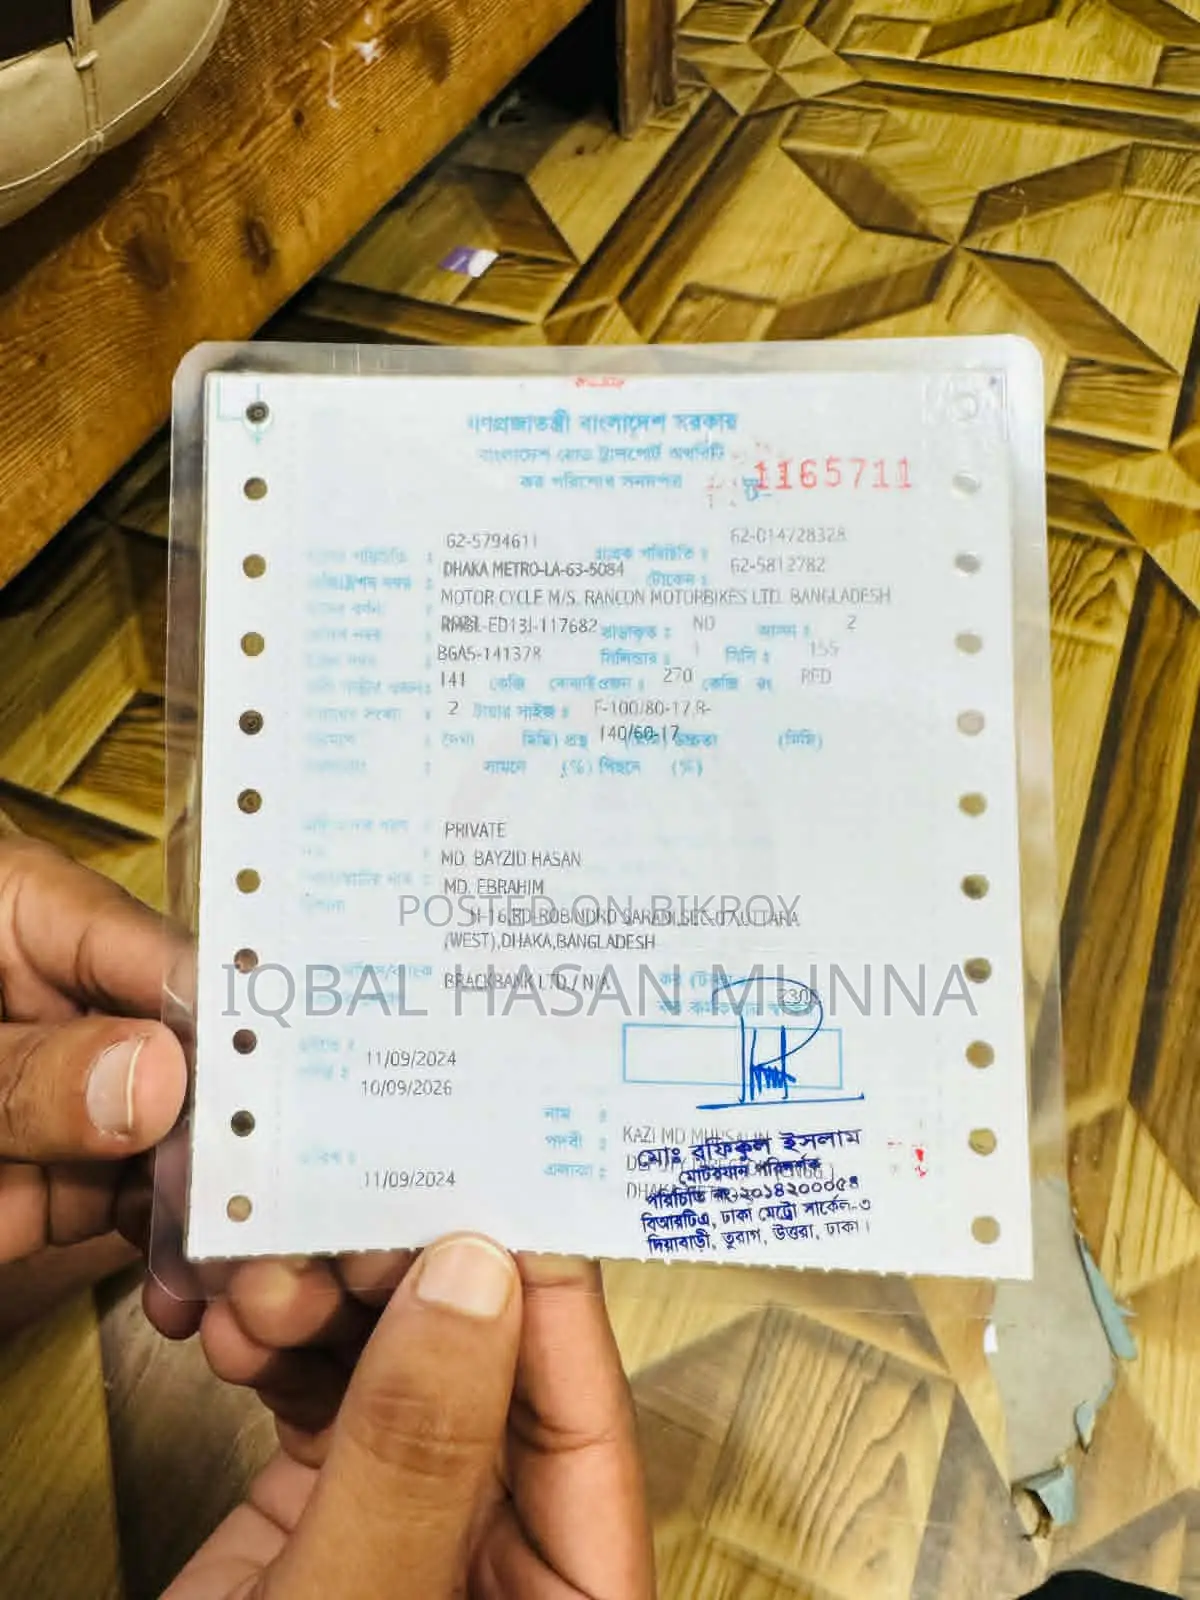 গণপ্রজাতন্ত্রী বাংলাদেশ সরকার
বাংলাদেশ রোড ট্রান্সপোর্ট অথরিটি
কর পরিশোধ সনদপত্র
1165711
62-5794611 গ্রাহক পরিচিতি : 62-014728328
DHAKA METRO-LA-63-5084 টোকেন : 62-5812782
MOTOR CYCLE M/S. RANCON MOTORBIKES LTD. BANGLADESH
RMBL-ED13J-117682 ভাড়াকৃত : NO আসন : 2
BGA5-141378 সিলিন্ডার : 1 সিসি : 155
141 কেজি বোঝাই ওজন : 270 কেজি রং RED
2 টায়ার সাইজ : F-100/80-17,R-
140/60-17
: দৈর্ঘ্য (মিমি) প্রস্থ (মিমি) উচ্চতা (মিমি)
: সামনে (%) পিছনে (%)
: PRIVATE
: MD. BAYZID HASAN
: MD. EBRAHIM
H-16,RD-ROBINDRO SARANI,SEC-07,UTTARA
POSTED ON BIKROY
(WEST),DHAKA,BANGLADESH
BRACKBANK LTD./ N/A
IQBAL HASAN MUNNA
11/09/2024
10/09/2026
নাম :
পদবী : KAZI MD
এলাকা :
11/09/2024
মোঃ রফিকুল ইসলাম
মোটরযান পরিদর্শক
পরিচিতি নং-২০১৪২০০০৫৪
বিআরটিএ, ঢাকা মেট্রো সার্কেল-৩
দিয়াবাড়ী, তুরাগ, উত্তরা, ঢাকা।